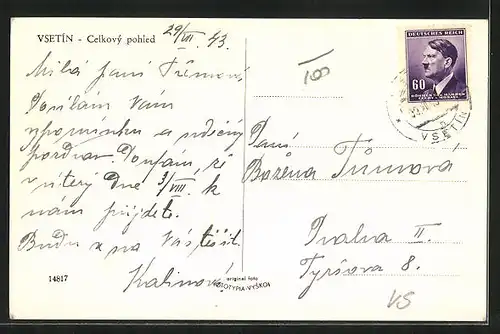 VSETÍN - Celkový pohled
29/VII. 43.
Milá paní Tůmová
Posílám Vám
vzpomínku a srdečný
pozdrav. Doufám, že
v úterý dne 3/VIII. k
nám přijdete.
Budu se na Vás těšit
Kalinová
14817
original foto
FOTOTYPIA-VYŠKOV
DEUTSCHES REICH
60
BÖHMEN UND MÄHREN
ČECHY A MORAVA
VSETÍN
Paní
Božena Tůmová
Praha II.
Tyršova 8.
VS